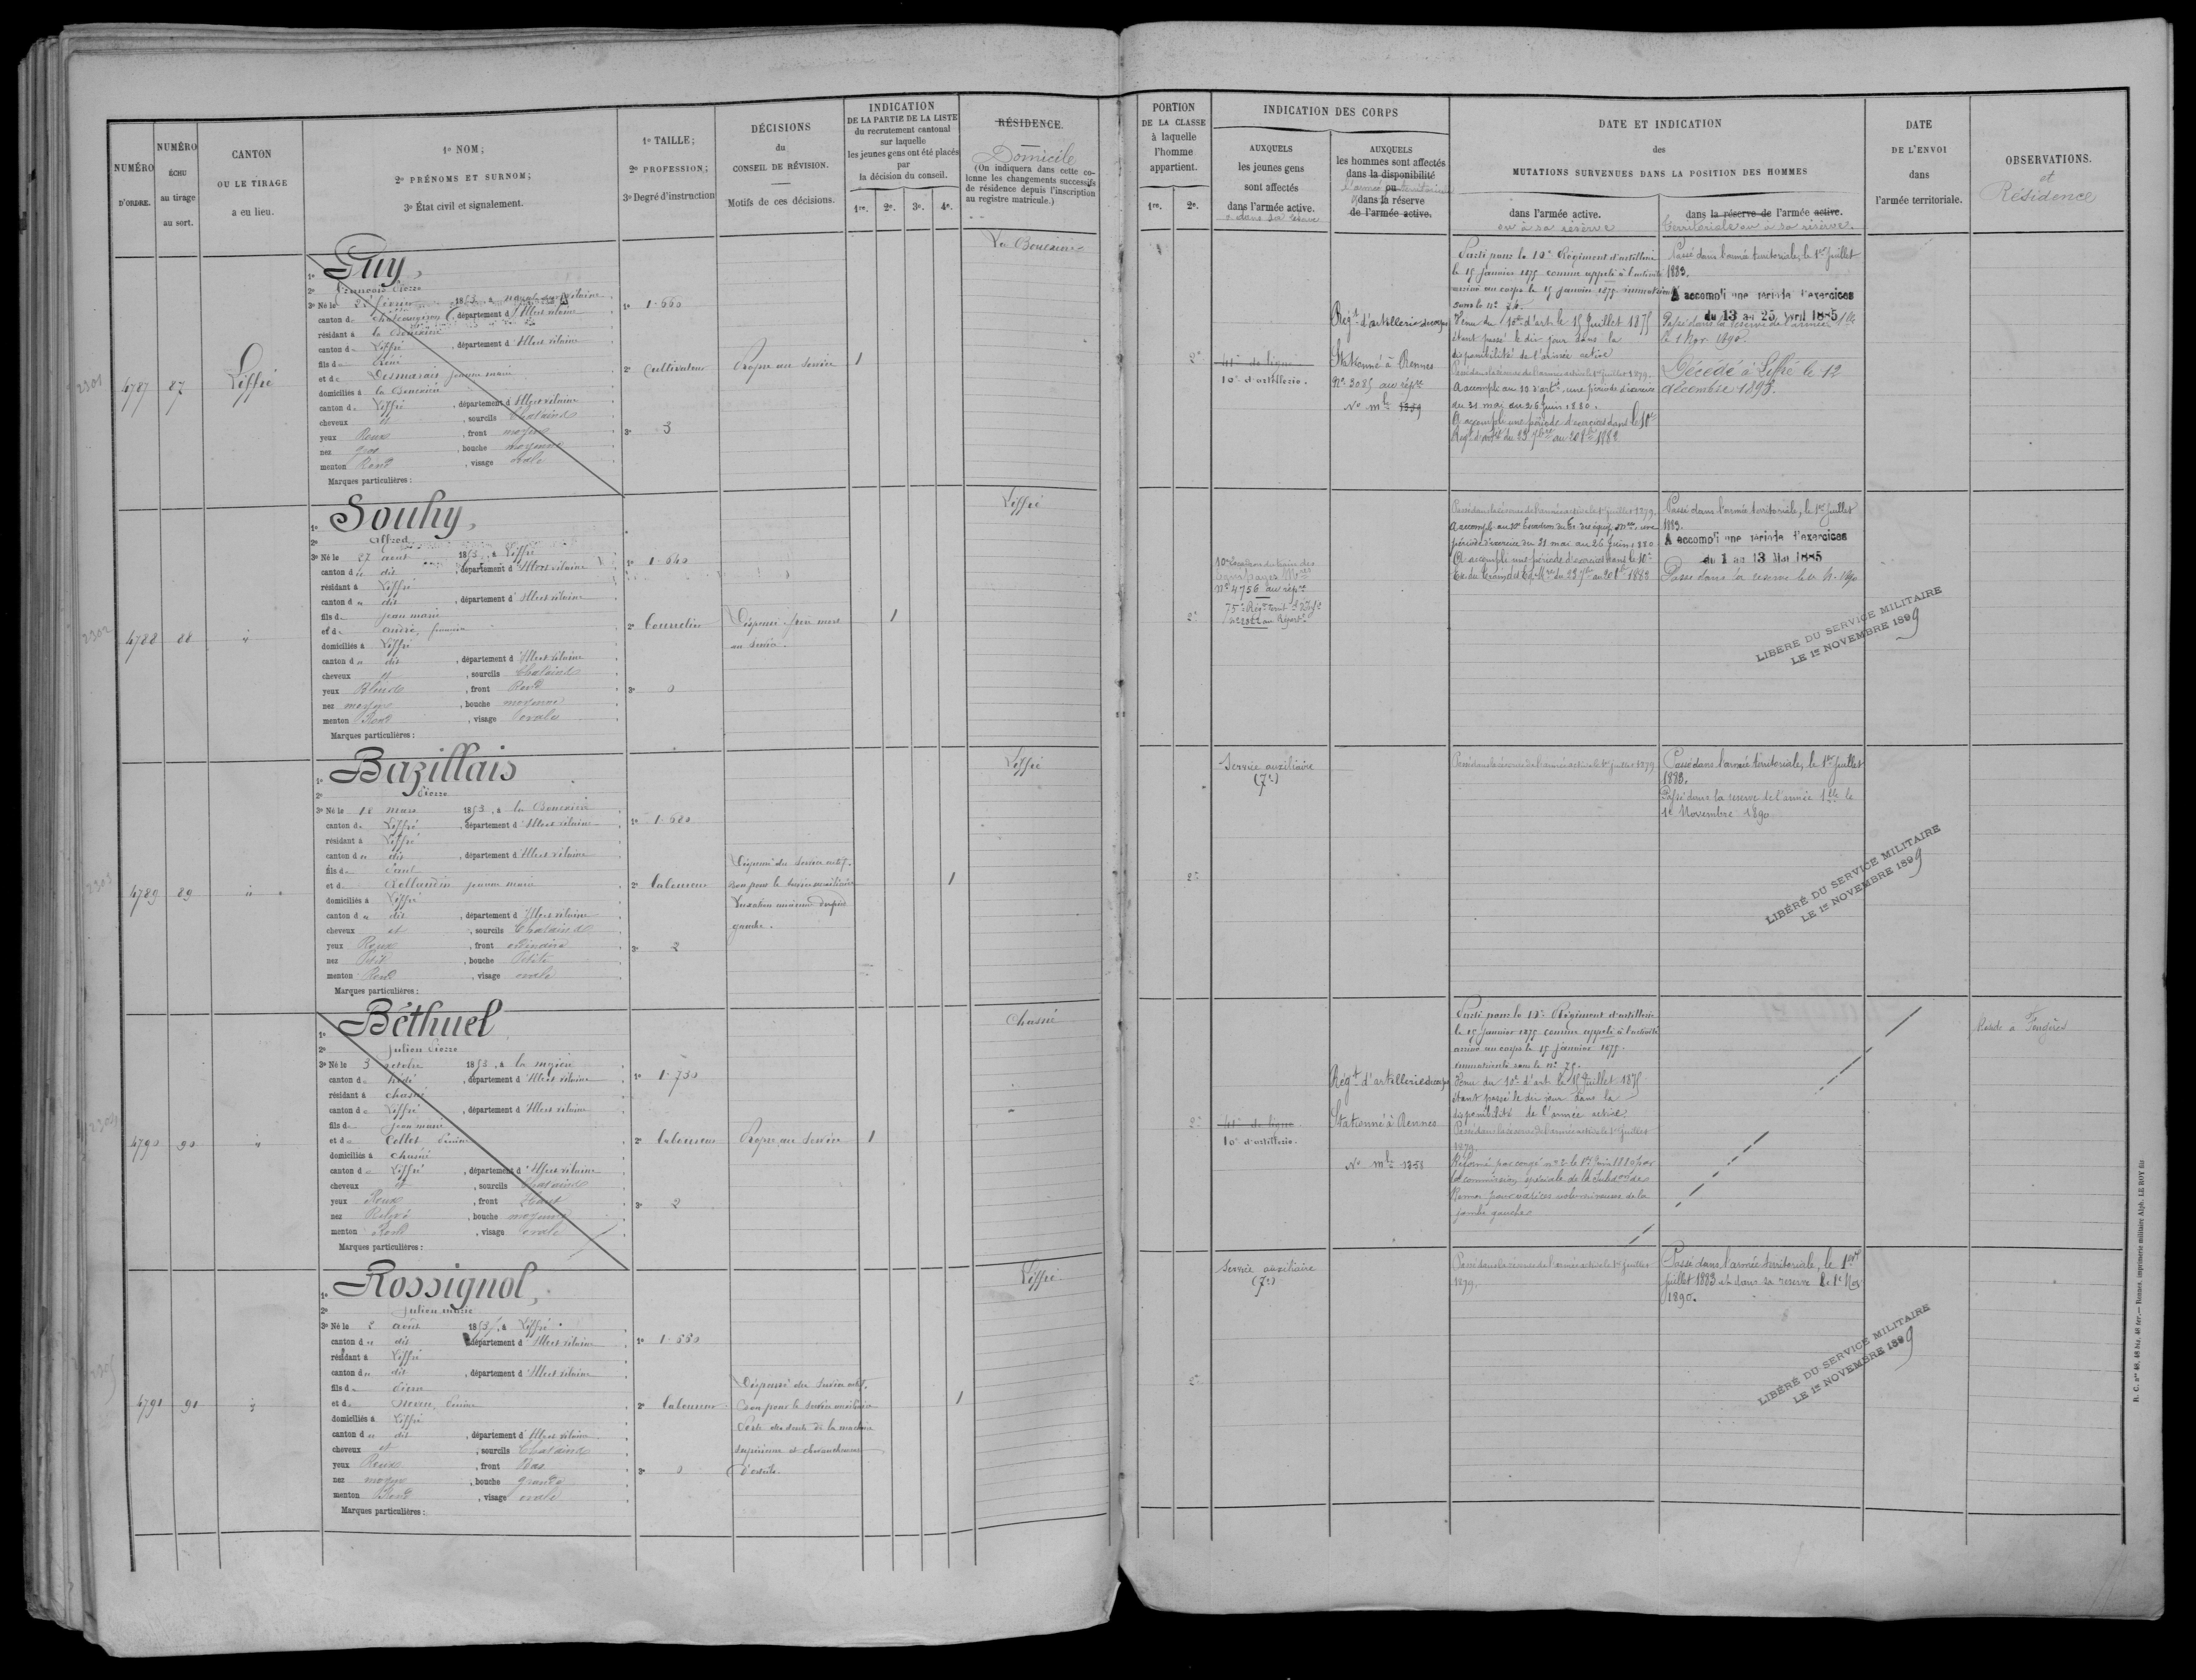 NUMÉRO
D'ORDRE.
NUMÉRO
ÉCHU
au tirage
au sort.
CANTON
OU LE TIRAGE
a eu lieu.
1º NOM;
2º PRÉNOMS ET SURNOM;
3º État civil et signalement.
1º TAILLE;
2º PROFESSION;
3º Degré d'instruction
DÉCISIONS
du
CONSEIL DE RÉVISION.
Motifs de ces décisions.
INDICATION
DE LA PARTIE DE LA LISTE
du recrutement cantonal
sur laquelle
les jeunes gens ont été placés
par
la décision du conseil.
1re. 2e. 3e. 4e.
RÉSIDENCE.
Domicile
(On indiquera dans cette co-
lonne les changements successifs
de résidence depuis l'inscription
au registre matricule.)
4787 87 Liffré
Guy,
2º François Pierre
canton de Chateaugiron, département d'Ille et vilaine
résidant à la Bouexière
canton de Liffré, département d'Ille et vilaine
fils de René
et de Desmarais jeanne marie
domiciliés à la Bouexière
canton de Liffré, département d'Ille et vilaine
cheveux et, sourcils Chatains
yeux Roux, front moyen
nez gros, bouche moyenne
menton Rond, visage ovale
Marques particulières :
1º 1.660
2º Cultivateur
3º 3
Propre au service
1
La Bouexière
4788 88 "
Souhy,
2º Alfred
3º Né le 27 aout 1853, à Liffré
canton du dit, département d'Ille et vilaine
résidant à Liffré
canton du dit, département d'Ille et vilaine
fils de jean marie
et de André, françoise
domiciliés à Liffré
canton du dit, département d'Ille et vilaine
cheveux et, sourcils Chatains
yeux Bleus, front Rond
nez moyen, bouche moyenne
menton Rond, visage ovale
Marques particulières :
1º 1.640
2º
3º 0
Dispensé frère mort
au service.
1
Liffré
4789 89 "
Bazillais
2º Pierre
3º Né le 18 mars 1853, à la Bouexière
canton de Liffré, département d'Ille et vilaine
résidant à Liffré
canton du dit, département d'Ille et vilaine
fils de Paul
et de jeanne marie
domiciliés à Liffré
canton du dit, département d'Ille et vilaine
cheveux et, sourcils Chatains
yeux Roux, front ordinaire
nez Petit, bouche Petite
menton Rond, visage ovale
Marques particulières :
1º 1.680
2º Laboureur
3º 2
Dispensé du service actif.
Bon pour le service auxiliaire
Luxation ancienne du pied
gauche.
1
Liffré
4790 90 "
Béthuel
2º Julien Pierre
3º Né le 3 octobre 1853, à la mézière
canton de hédé, département d'Ille et vilaine
résidant à Chasné
canton de Liffré, département d'Ille et vilaine
fils de Jean marie
et de Collet Perrine
domiciliés à Chasné
canton de Liffré, département d'Ille et vilaine
cheveux et, sourcils Chatains
yeux Roux, front Haut
nez Relevé, bouche moyenne
menton Rond, visage ovale
Marques particulières :
1º 1.730
2º Laboureur
3º 2
Propre au service
1
Chasné
4791 91 "
Rossignol,
2º Julien marie
3º Né le 2 août 1853, à Liffré
canton du dit, département d'Ille et vilaine
résidant à Liffré
canton du dit, département d'Ille et vilaine
fils de Pierre
et de Perrine
domiciliés à Liffré
canton du dit, département d'Ille et vilaine
cheveux et, sourcils Chatains
yeux Roux, front Bas
nez moyen, bouche grande
menton Rond, visage ovale
Marques particulières :
1º 1.660
2º Laboureur
3º 0
Dispensé du service actif.
Bon pour le service auxiliaire
Perte des dents de la machoire
supérieure
1
Liffré
PORTION
DE LA CLASSE
à laquelle
l'homme
appartient.
1re. 2e.
INDICATION DES CORPS
AUXQUELS
les jeunes gens
sont affectés
dans l'armée active.
ou dans sa réserve
AUXQUELS
les hommes sont affectés
dans la disponibilité
l'armée ou territoriale
dans la réserve
de l'armée active.
DATE ET INDICATION
des
MUTATIONS SURVENUES DANS LA POSITION DES HOMMES
dans l'armée active.
ou à sa réserve
dans la réserve de l'armée active.
territoriale ou à sa réserve.
DATE
DE L'ENVOI
dans
l'armée territoriale.
OBSERVATIONS.
et
Résidence
2e
41e de ligne
10e d'artillerie.
Régt d'artillerie du corps
Stationné à Rennes
No 3085 au rép.re
No mle 1359
Parti pour le 10e Régiment d'artillerie
le 15 Janvier 1875 comme appelé à l'activité
arrivé au corps le 15 Janvier 1875 immatriculé
sous le no 26.
Venu du 10e d'art. le 15 Juillet 1875
étant passé le dit jour dans la
disponibilité de l'armée active
Passé dans la réserve de l'armée active le 1er juillet 1879.
A accompli au 10 d'art.ie une période d'exercice
du 31 mai au 26 Juin 1880.
A accompli une période d'exercices dans le 10e
Régt d'art.ie du 23 7bre au 20 8bre 1882
Passé dans l'armée territoriale, le 1er Juillet
1883.
A accompli une période d'exercices
du 13 au 25 Avril 1885
Passé dans la réserve de l'armée t.le
le 1 Nov. 1890.
Décédé à Liffré le 12
décembre 1893.
2e
10e Escadron du train des
Equipages M.res
No 4756 au rép.re
Passé dans la réserve de l'armée active le 1er juillet 1879.
A accompli au 10e Escadron du Tr. des équip. M.res une
période d'exercice du 31 mai au 26 Juin 1880.
A accompli une période d'exercices dans le 10e
Passé dans l'armée territoriale, le 1er Juillet
1883.
A accompli une période d'exercices
du 1 au 13 Mai 1885
Passé dans la réserve
LIBÉRÉ DU SERVICE MILITAIRE
LE 1er NOVEMBRE 1899
2e
Service auxiliaire
(7e)
Passé dans la réserve de l'armée active le 1er juillet 1879
Passé dans l'armée territoriale, le 1er Juillet
1883.
Passé dans la réserve de l'armée t.le le
1er Novembre 1890
LIBÉRÉ DU SERVICE MILITAIRE
LE 1er NOVEMBRE 1899
2e
41e de ligne
10e d'artillerie.
Régt d'artillerie du corps
Stationné à Rennes
No mle 1358
Parti pour le 10e Régiment d'artillerie
le 15 Janvier 1875 comme appelé à l'activité
arrivé au corps le 15 Janvier 1875.
immatriculé sous le no 25.
Venu du 10e d'art. le 15 Juillet 1875
étant passé le dit jour dans la
disponibilité de l'armée active.
Passé dans la réserve de l'armée active le 1er juillet
1879.
Réformé par congé no 2 le 1er Juin 1880 par
la commission spéciale de la Subd.on de
Rennes pour varices volumineuses de la
jambe gauche
Réside à Fougères
2e
Service auxiliaire
(7e)
Passé dans la réserve de l'armée active le 1er juillet
1879.
Passé dans l'armée territoriale, le 1er
juillet 1883 et dans sa réserve le 1er Nov
1890.
LIBÉRÉ DU SERVICE MILITAIRE
LE 1er NOVEMBRE 1899